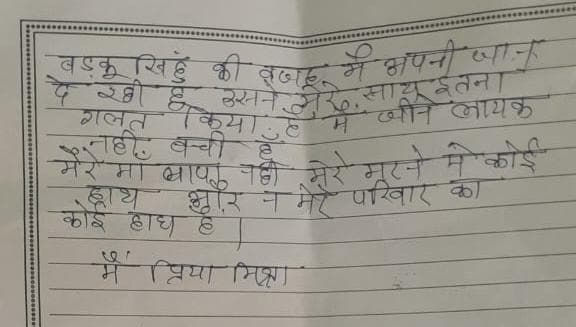 बड़कू सिंह की वजह में अपनी जान
दे रही हूं उसने मेरे साथ इतना
गलत किया है में जीने लायक
नही बची हूँ
मेरे मां बापू नही मेरे मरने मे कोई
हाथ और न मेरे परिवार का
कोई हाथ है |
मैं प्रिया मिश्रा